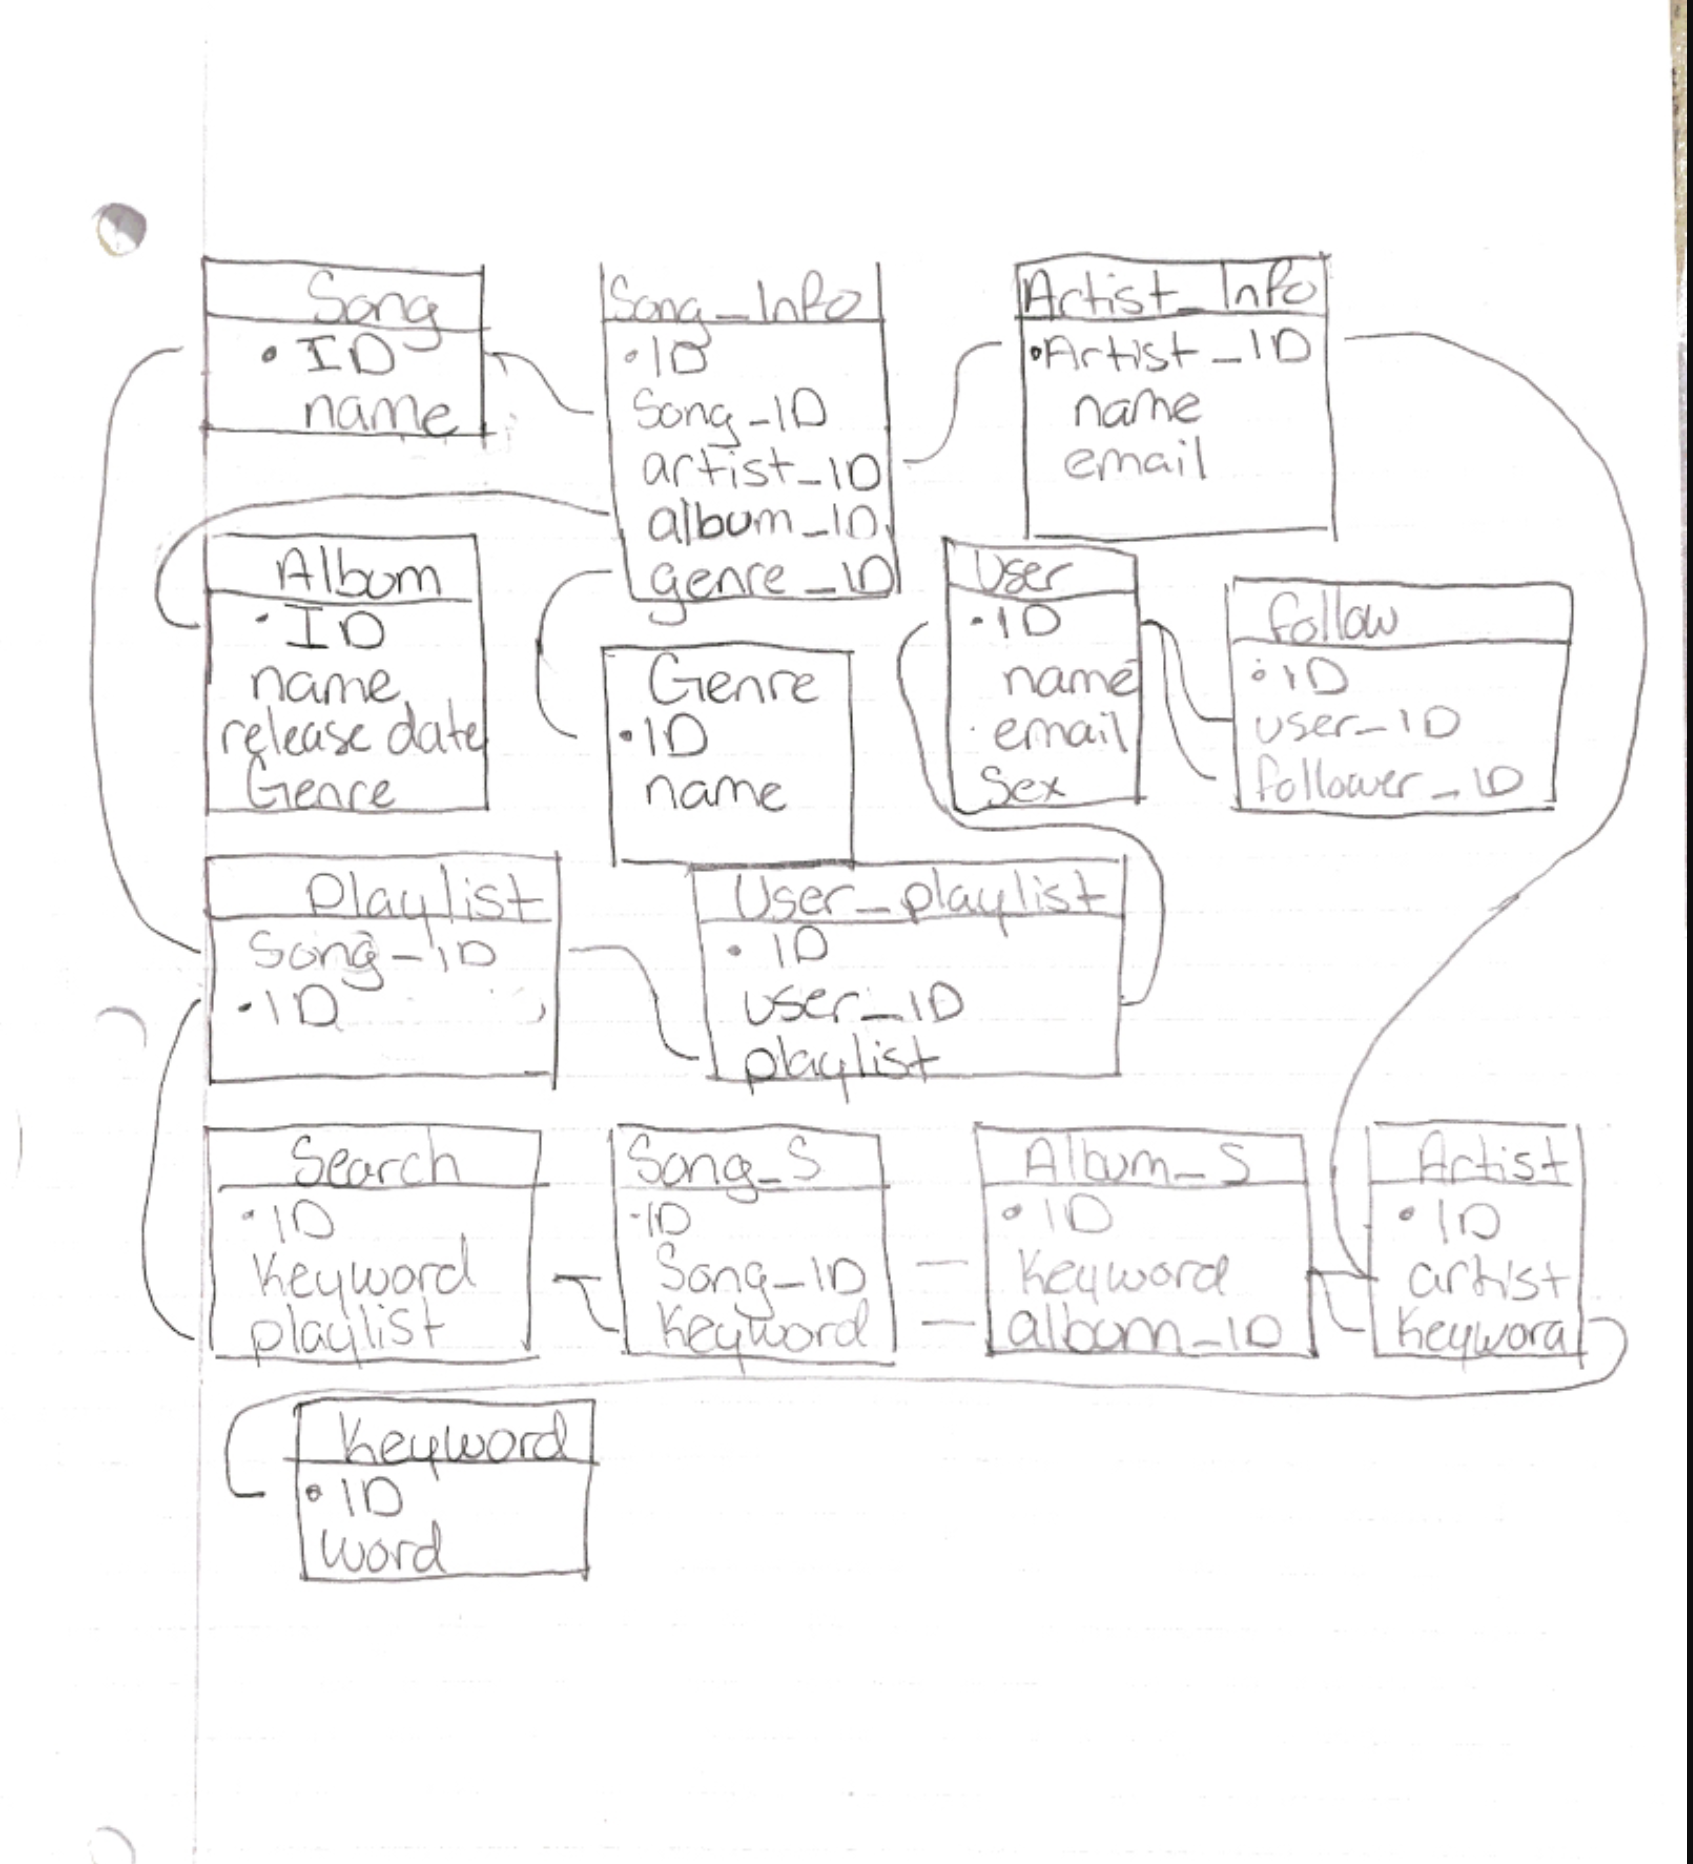 Song
• ID
name
Song_Info
• ID
Song_ID
artist_ID
album_ID
genre_ID
Artist_Info
• Artist_ID
name
email
Album
• ID
name
release date
Genre
Genre
• ID
name
User
• ID
name
email
Sex
follow
• ID
user_ID
follower_ID
Playlist
Song_ID
• ID
User_playlist
• ID
user_ID
playlist
Search
• ID
Keyword
playlist
Song_S
• ID
Song_ID
Keyword
Album_S
• ID
Keyword
album_ID
Artist
• ID
artist
Keyword
Keyword
• ID
word